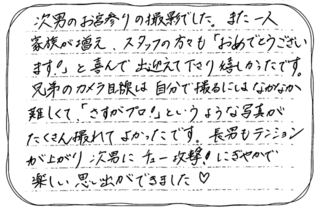 次男のお宮参りの撮影でした。また一人
家族が増え、スタッフの方々も「おめでとうござい
ます!」と喜んで出迎えて下さり嬉しかったです。
兄弟のカメラ目線は自分で撮るにはなかなか
難しくて「さすがプロ!」というような写真が
たくさん撮れてよかったです。長男もテンション
が上がり次男にチュー攻撃!にぎやかで
楽しい思い出ができました♡